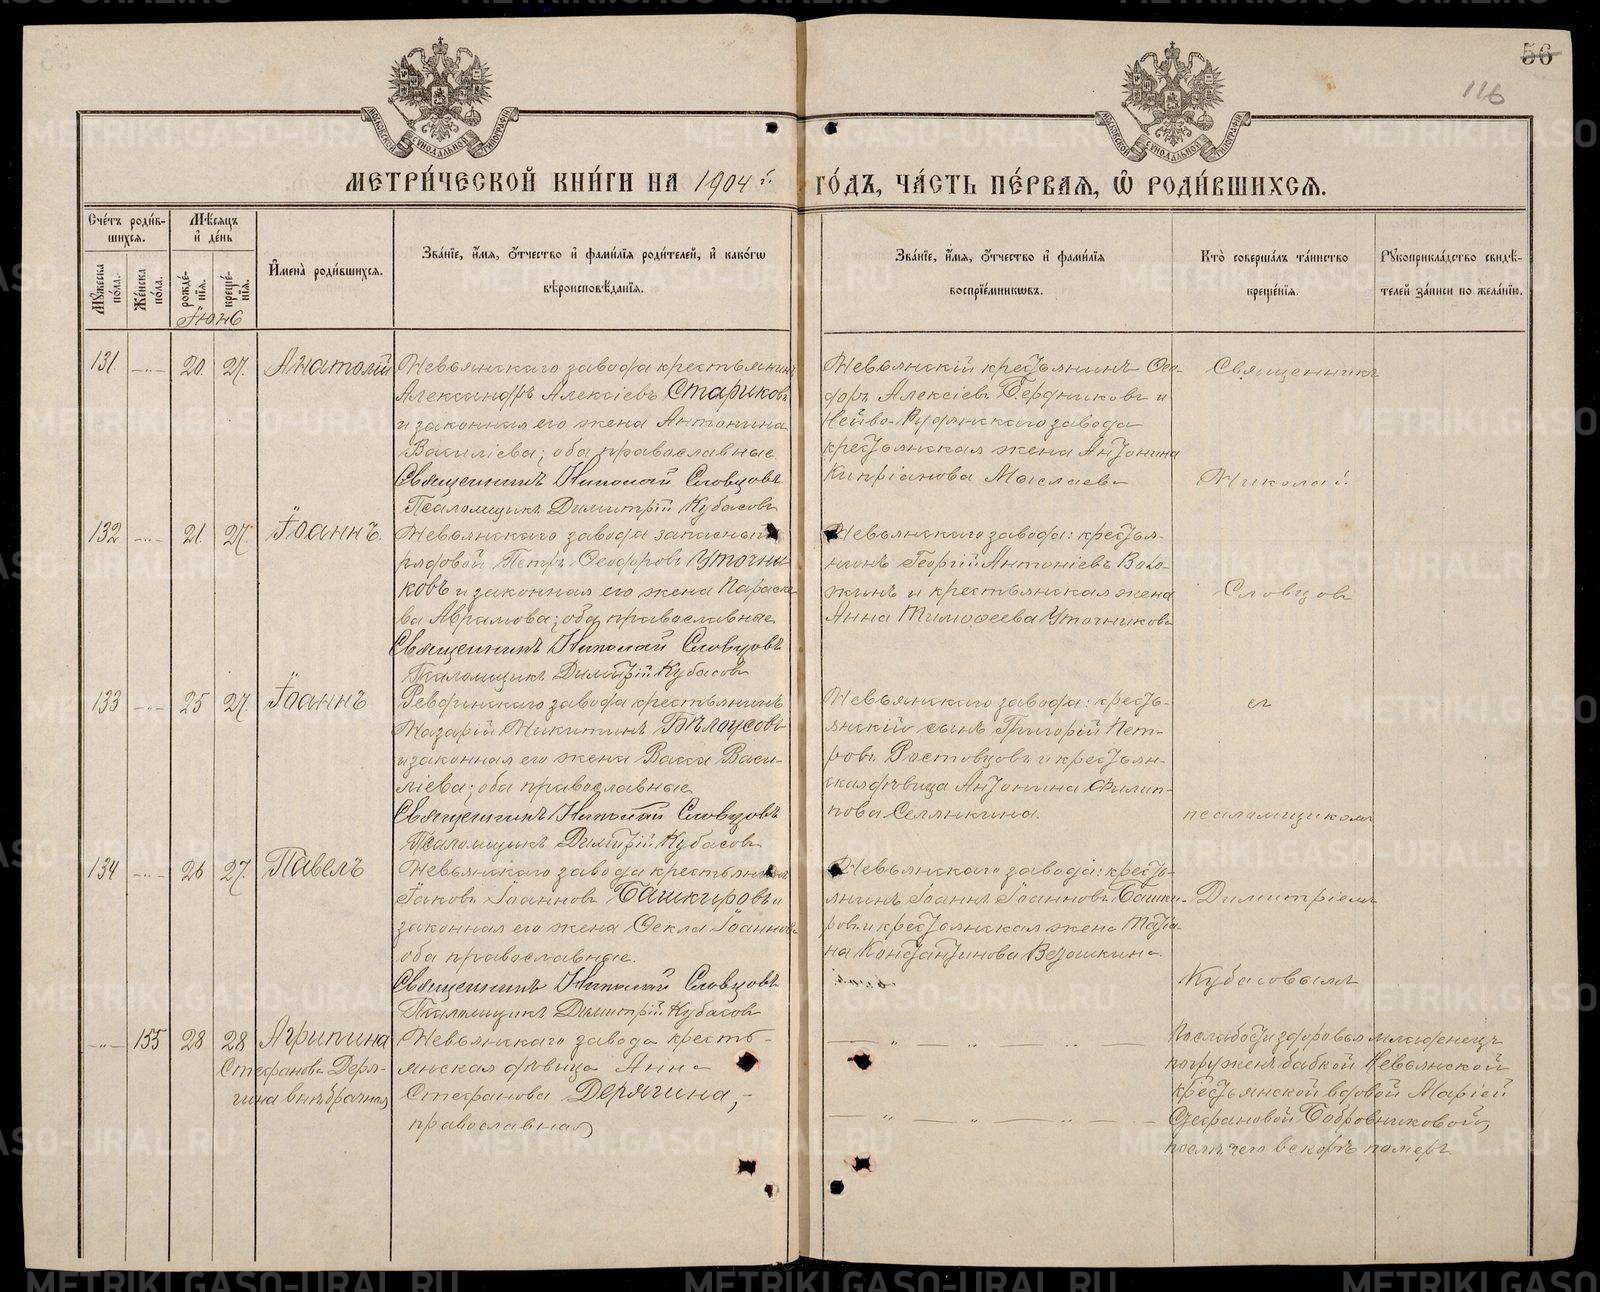 56
116
МЕТРИ́ЧЕСКОЙ КНИ́ГИ НА 1904 й ГО́ДЪ, ЧА́СТЬ ПЕ́РВАѦ, Ѽ РОДИ́ВШИХСѦ.
Сче́тъ роди́в-
шихсѧ.
Мꙋжеска по́ла.
Же́нска по́ла.
Мѣ́сѧцъ и҆ де́нь
рожде́-нїѧ.
креще́-нїѧ.
Іюнь
И҆мена̀ роди́вшихсѧ.
Зва́нїе, и҆́мѧ, ѻ҆́тчество и҆ фами́лїѧ роди́телей, и҆ како́гѡ
вѣроисповѣ́данїѧ.
Зва́нїе, и҆́мѧ, ѻ҆́тчество и҆ фами́лїѧ
воспрїе́мникѡвъ.
Кто̀ соверша́лъ та́инство
креще́нїѧ.
Рꙋкоприкла́дство свидѣ́-
телей за́писи по жела́нїю.
131 20. 27. Анатолій
Невьянскаго завода крестьянинъ
Александръ Алексіевъ Стариковъ
и законная его жена Антонина
Василіева; оба православные
Священникъ Николай Словцовъ
Псаломщикъ Димитрій Кубасовъ
Невьянскій крестьянинъ Ѳео-
доръ Алексіевъ Бердниковъ и
Нейво-Рудянскаго завода
крестьянская жена Антонина
Кипріанова Мыслаева
Священникъ
Николай
132 21. 27. Іоаннъ.
Невьянскаго завода запасный
рядовой Петръ Ѳеодоровъ Уточни-
ковъ и законная его жена Параске-
ва Аврамова; оба православные
Священникъ Николай Словцовъ
Псаломщикъ Димитрій Кубасовъ
Невьянскаго завода: крестья-
нинъ Георгій Антоніевъ
и крестьянская жена
Анна Тимоѳеева Уточникова
Словцовъ
133 25 27. Іоаннъ
Ревдинскаго завода крестьянинъ
Назарій Никитинъ Бѣлоусовъ
и законная его жена Васса Васи-
ліева; оба православные
Священникъ Николай Словцовъ
Псаломщикъ Димитрій Кубасовъ
Невьянскаго завода: кресть-
янскій сынъ Григорій Пет-
ровъ Ростовцовъ и крестьян-
ская дѣвица Антонина Филип-
пова Селянкина.
съ
псаломщикомъ
134 26 27. Павелъ
Невьянскаго завода крестьянинъ
Іаковъ Іоанновъ Башкировъ и
законная его жена Ѳекла Іоаннова
оба православные.
Священникъ Николай Словцовъ
Псаломщикъ Димитрій Кубасовъ
Невьянскаго завода: кресть-
янинъ Іоаннъ Іоанновъ Башки-
ровъ и крестьянская жена Татіа-
на Константинова Ведошкина.
Димитріемъ
Кубасовымъ
155 28 28 Агрипина
Стефанова Деря-
гина внѣбрачная
Невьянскаго завода кресть-
янская дѣвица Анна
Стефанова Дерягина, -
православная
По слабости здоровья младенецъ
погруженъ бабкой Невьянской
крестьянской вдовой Маріей
Стефановой Бобровниковой,
послѣ чего вскорѣ померъ